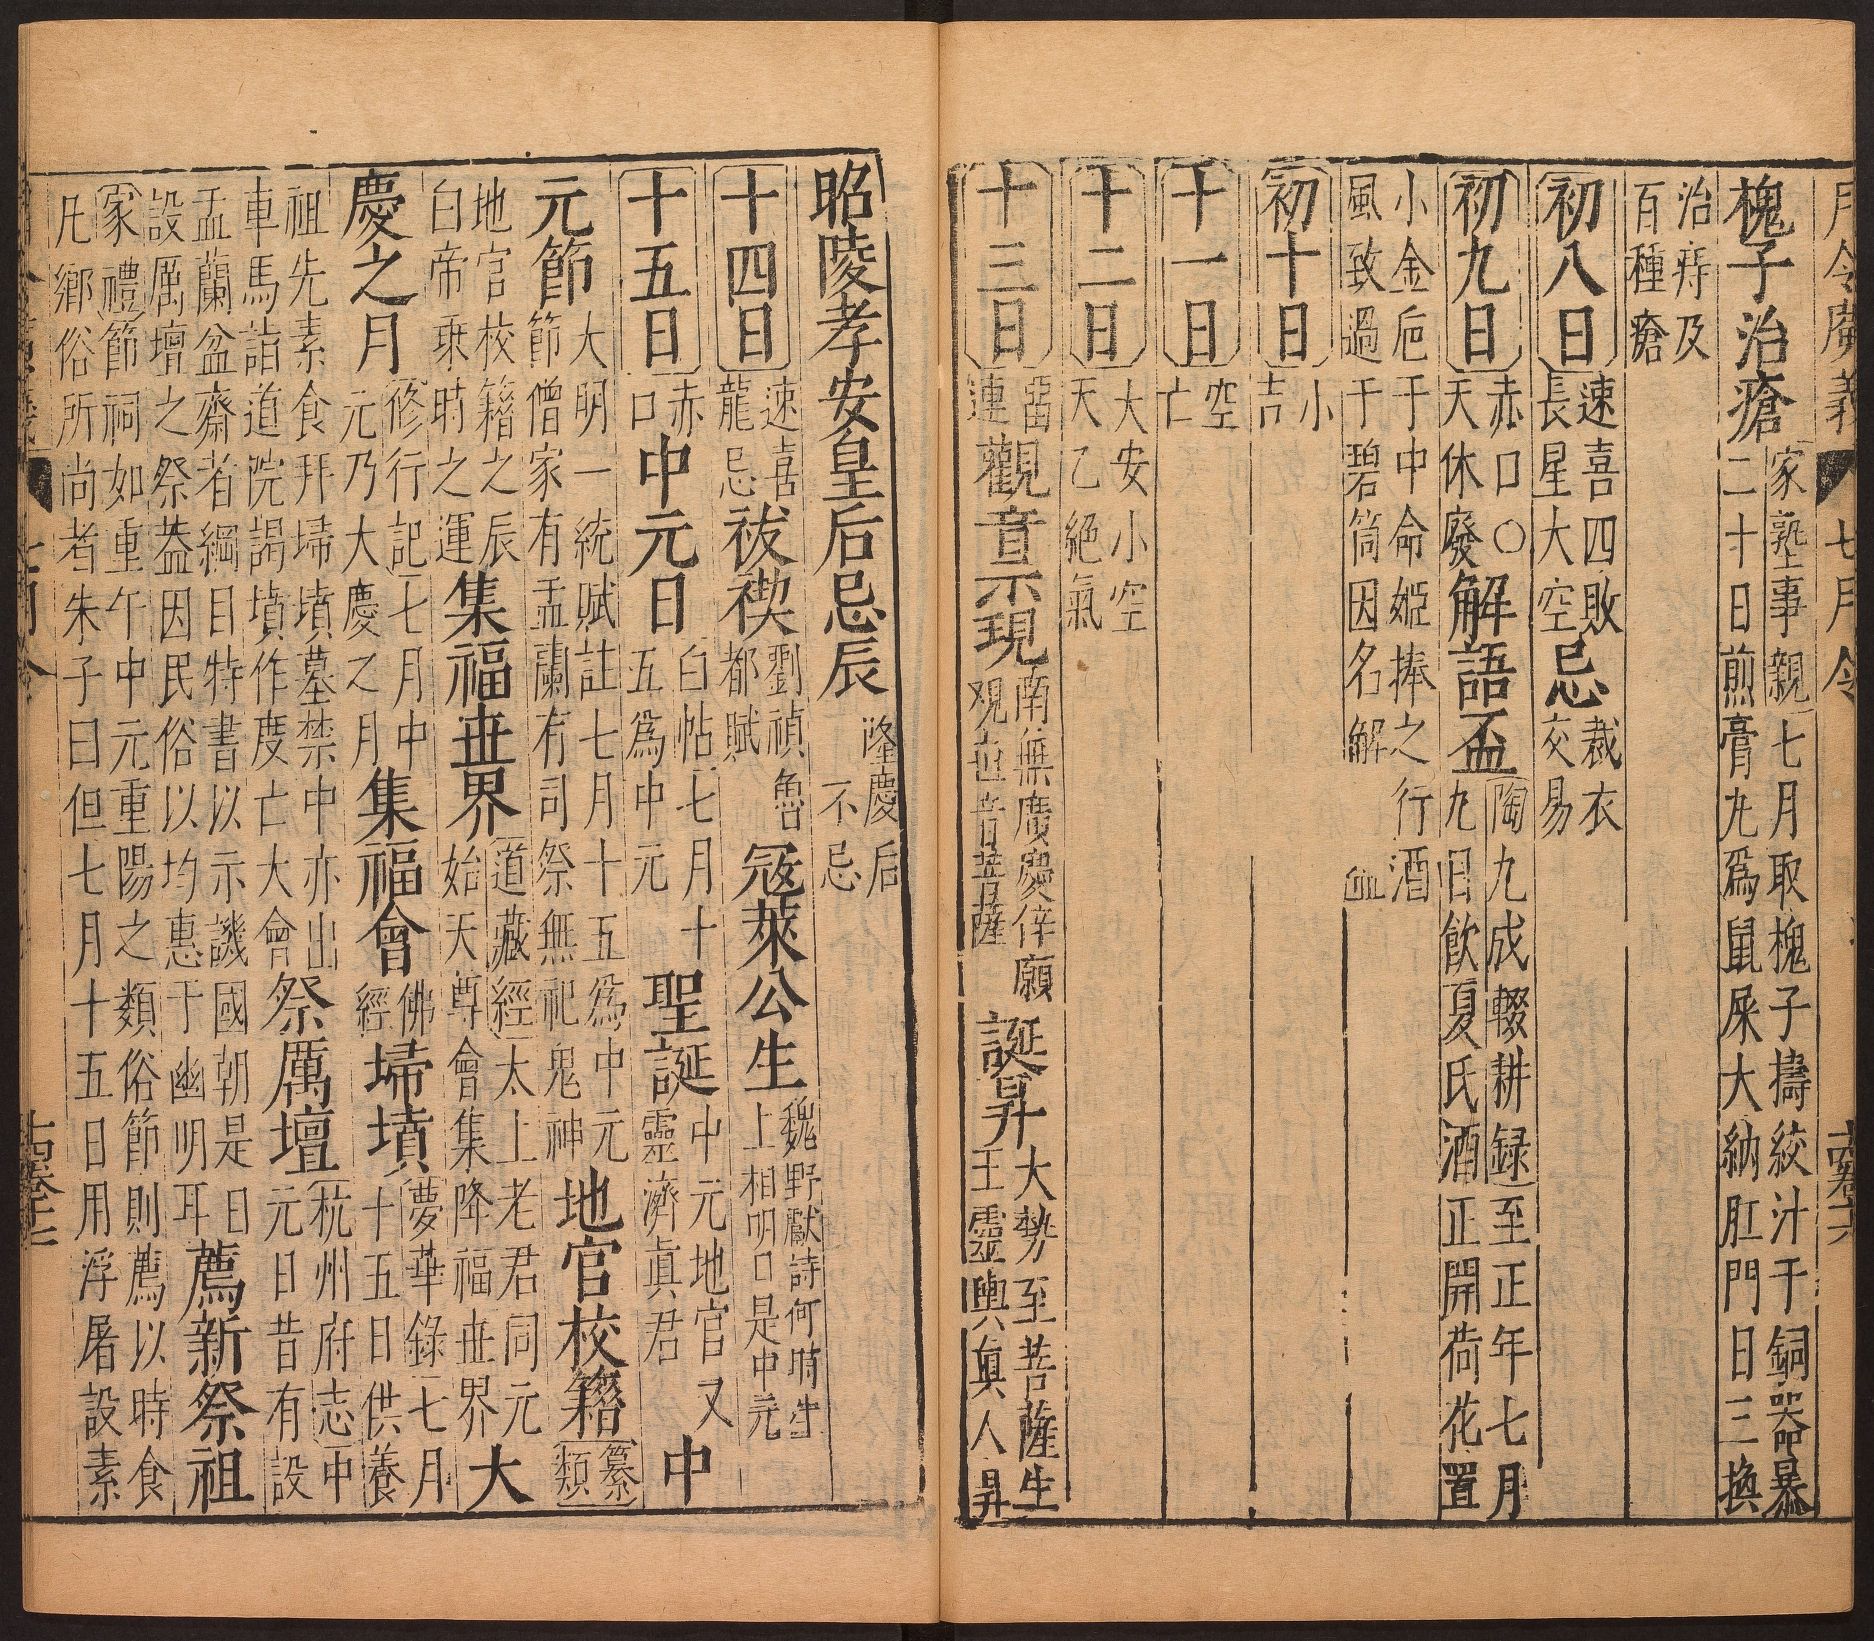 月令廣義 七月令
槐子治瘡 家塾事親 七月取槐子擣絞汁于銅器暴
二十日煎膏丸爲鼠屎大納肛門日三換
治痔及
百種瘡
初八日 速喜四敗 長星大空 忌 裁衣 交易
初九日 赤口〇 天休廢 解語盃 陶九成輟耕録 至正年七月
九日飲夏氏酒正開荷花置
小金卮于中命姬捧之行酒
風致過于碧筒因名解
語盃
初十日 小吉
十一日 空亡
十二日 大安小空 天乙絕氣
十三日 連 觀音示現 南無廣慶 願 觀世音菩薩 誕昇 大勢至菩薩生 王靈輿眞人昇
昭陵孝安皇后忌辰 隆慶后 不忌
十四日 速喜 龍忌 祓禊 劉禎魯都賦 冦萊公生 魏野獻詩何時生上相明日是中元
十五日 赤口 中元日 白帖 七月十五爲中元 聖誕 中元地官又靈濟眞君 中
元節 大明一統賦註七月十五爲中元
節僧家有盂蘭有司祭無祀鬼神 地官校籍 纂類
地官校籍之辰
白帝乗時之運 集福世界 道藏經 太上老君同元始天尊會集降福世界 大
慶之月 修行記 七月中元乃大慶之月 集福會 佛經 埽墳 夢華錄 七月十五日供養
祖先素食拜埽墳墓禁中亦出
車馬詣道院謁墳作度亡大會 祭厲壇 杭州府志 中元日昔有設
盂蘭盆齋者綱目特書以示譏國朝是日
設厲壇之祭葢因民俗以均惠于幽明耳 薦新祭祖
家禮 節祠如重午中元重陽之類俗節則薦以時食
凡鄉俗所尚者朱子曰但七月十五日用浮屠設素